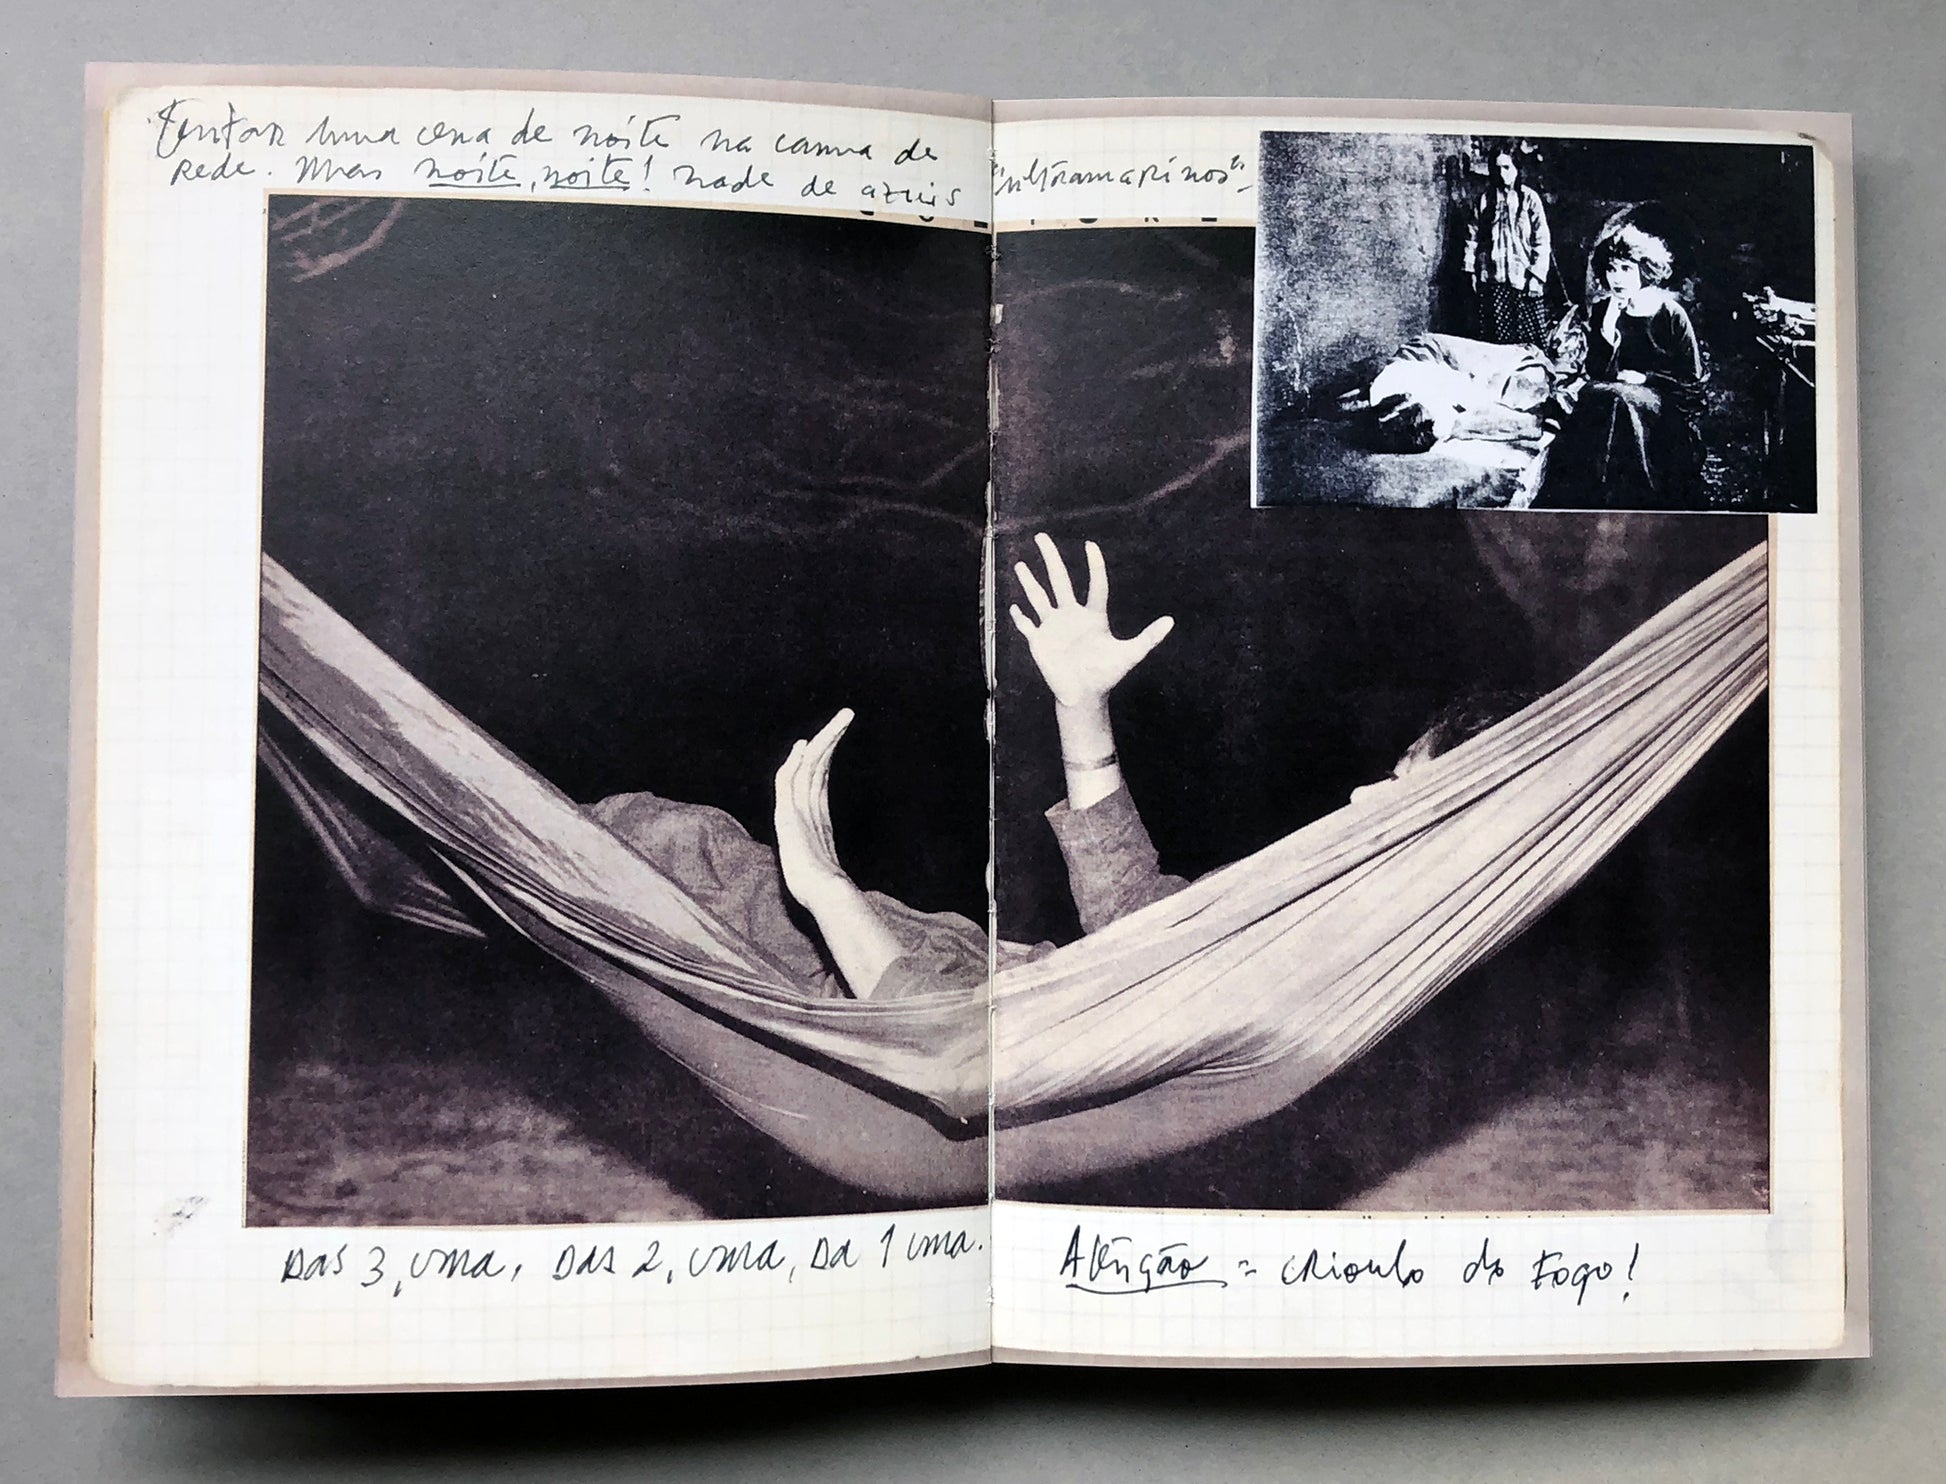 Tentar uma cena de noite na cama de
rede. Mas noite, noite! nada de azuis "ultramarinos".
DAS 3, UMA, DAS 2, UMA, DA 1 UMA.
Atenção = CRioulo do Fogo!